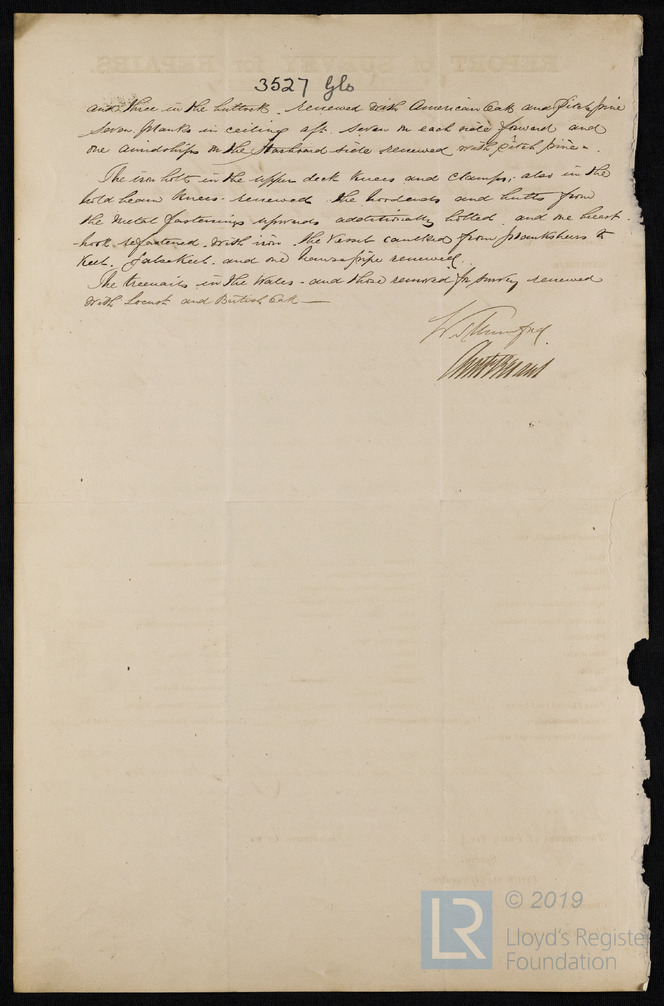 3527 Glo
and three in the buttock. renewed with American Oak and pitch pine
Seven planks in ceiling aft. Seven on each side forward and
one amidships on the Starboard side renewed with Pitch pine.
The iron bolts in the upper deck knees and clamps; also in the
hold beam knees. renewed the hoodends and butts from
the metal fastenings upwards additionally bolted and one breast
hook refastened. with iron. the Vessel caulked from plankshears to
Keel. falsekeel. and one hawsepipe renewed.
The treenails in the Wales. and those removed for survey renewed
with Locust and British Oak
© 2019
LR
Lloyd's Register
Foundation